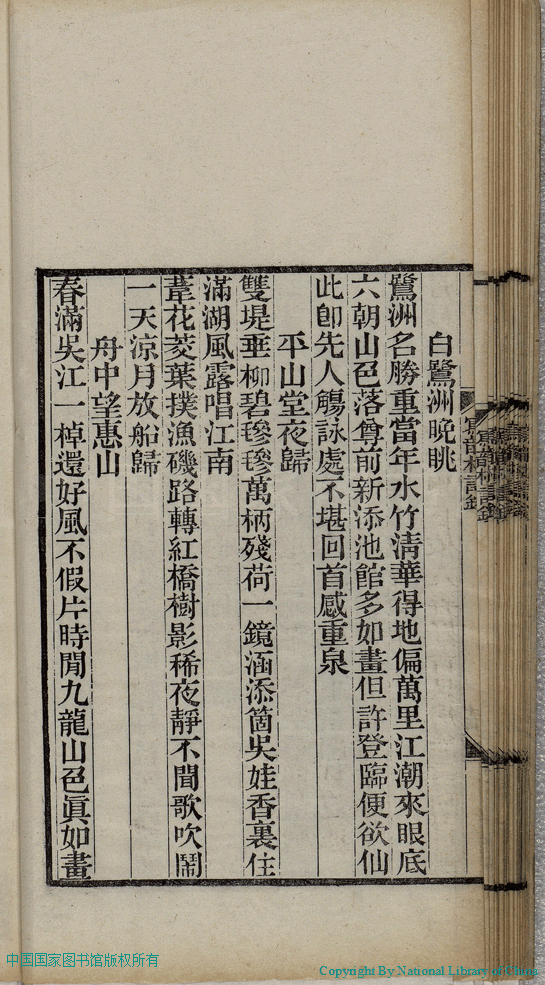 白鷺洲晚眺
鷺洲名勝重當年水竹清華得地偏萬里江潮來眼底
六朝山色落尊前新添池館多如畫但許登臨便欲仙
此卽先人觴詠處不堪回首感重泉
平山堂夜歸
雙堤垂柳碧毿毿萬柄殘荷一鏡涵添箇吳娃香裏住
滿湖風露唱江南
葦花菱葉撲漁磯路轉紅橋樹影稀夜靜不聞歌吹鬧
一天涼月放船歸
舟中望惠山
春滿吳江一棹還好風不假片時閒九龍山色眞如畫
中国国家图书馆版权所有
Copyright By National Library of China